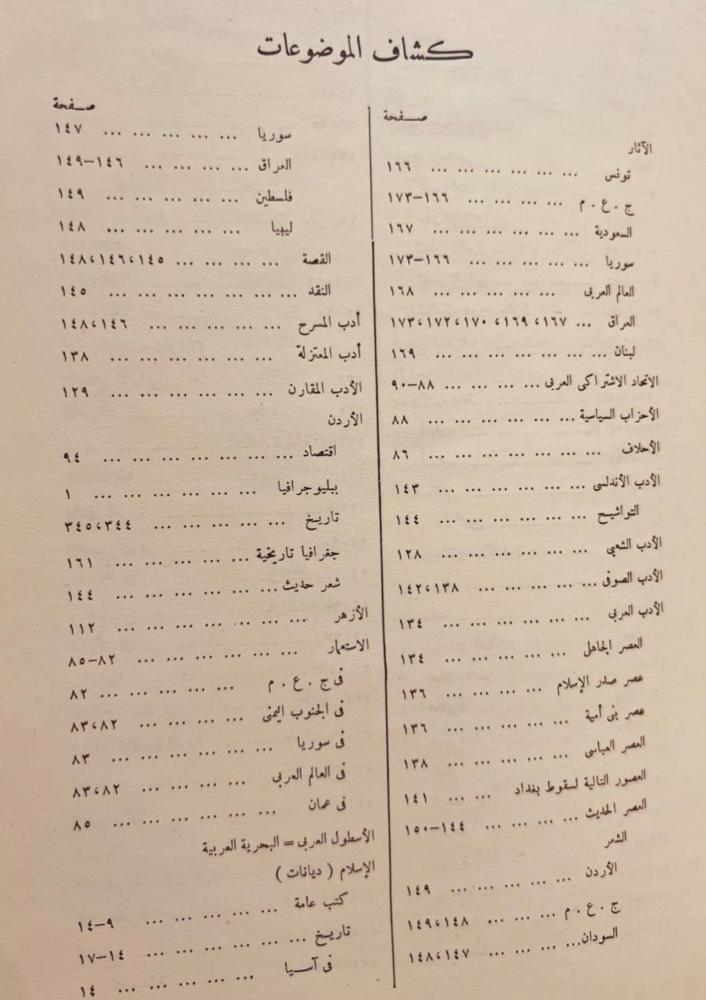 كشاف الموضوعات
صفحة
الآثار
تونس ... ... ... ... ... ... ١٦٦
ج . ع . م ... ... ... ... ... ١٦٦–١٧٣
السعودية ... ... ... ... ... ... ١٦٧
سوريا ... ... ... ... ... ١٦٦–١٧٣
العالم العربى ... ... ... ... ... ١٦٨
العراق ... ١٦٧، ١٦٩، ١٧٠، ١٧٢، ١٧٣
لبنان ... ... ... ... ... ... ... ١٦٩
الاتحاد الاشتراكى العربى ... ... ... ... ٨٨–٩٠
الأحزاب السياسية ... ... ... ... ... ... ٨٨
الأحلاف ... ... ... ... ... ... ... ٨٦
الأدب الأندلسى ... ... ... ... ... ... ١٤٣
التواشيح ... ... ... ... ... ... ١٤٤
الأدب الشعبى ... ... ... ... ... ... ١٢٨
الأدب الصوفى ... ... ... ... ... ١٣٨، ١٤٢
الأدب العربى ... ... ... ... ... ... ١٣٤
العصر الجاهلى ... ... ... ... ... ١٣٤
عصر صدر الإسلام ... ... ... ... ... ١٣٦
عصر بنى أمية ... ... ... ... ... ١٣٦
العصر العباسى ... ... ... ... ... ١٣٨
العصور التالية لسقوط بغداد ... ... ١٤١
العصر الحديث ... ... ... ... ... ١٤٤–١٥٠
الشعر
الأردن ... ... ... ... ... ١٤٩
ج . ع . م ... ... ... ... ١٤٨، ١٤٩
السودان ... ... ... ... ١٤٧، ١٤٨
صفحة
سوريا ... ... ... ... ... ١٤٧
العراق ... ... ... ... ١٤٦–١٤٩
فلسطين ... ... ... ... ... ١٤٩
ليبيا ... ... ... ... ... ١٤٨
القصة ... ... ... ... ١٤٥، ١٤٦، ١٤٨
النقد ... ... ... ... ... ... ... ١٤٥
أدب المسرح ... ... ... ... ... ١٤٦، ١٤٨
أدب المعتزلة ... ... ... ... ... ... ١٣٨
الأدب المقارن ... ... ... ... ... ... ١٢٩
الأردن
اقتصاد ... ... ... ... ... ... ... ٩٤
ببليوجرافيا ... ... ... ... ... ... ١
تاريخ ... ... ... ... ... ٣٤٤، ٣٤٥
جغرافيا تاريخية ... ... ... ... ... ١٦١
شعر حديث ... ... ... ... ... ... ١٤٤
الأزهر ... ... ... ... ... ... ... ١١٢
الاستعمار ... ... ... ... ... ... ٨٢–٨٥
فى ج . ع . م ... ... ... ... ... ٨٢
فى الجنوب اليمنى ... ... ... ... ٨٢، ٨٣
فى سوريا ... ... ... ... ... ... ٨٣
فى العالم العربى ... ... ... ... ٨٢، ٨٣
فى عمان ... ... ... ... ... ... ٨٥
الأسطول العربى = البحرية العربية
الإسلام ( ديانات )
كتب عامة ... ... ... ... ... ٩–١٤
تاريخ ... ... ... ... ... ... ... ١٤–١٧
فى آسيا ... ... ... ... ... ١٤